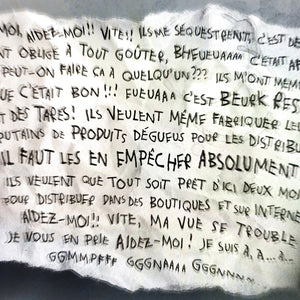 MOI, AIDEZ-MOI!! VITE!! ILS ME SÉQUESTRENT, C'EST DE
NT OBLIGÉ À TOUT GOÛTER, BHEUEUAAAA C'ÉTAIT AF
PEUT-ON FAIRE ÇA À QUELQU'UN??? ILS M'ONT MÊME
QUE C'ÉTAIT BON!!! FUEUAAA C'EST BEURK RES
T DES TARÉS! ILS VEULENT MÊME FABRIQUER LE
PUTAINS DE PRODUITS DÉGUEUS POUR LES DISTRIBU
IL FAUT LES EN EMPÊCHER ABSOLUMENT
ILS VEULENT QUE TOUT SOIT PRÊT D'ICI DEUX MOI
POUR DISTRIBUER DANS DES BOUTIQUES ET SUR INTERNE
AIDEZ-MOI!! VITE, MA VUE SE TROUBLE
JE VOUS EN PRIE AIDEZ-MOI! JE SUIS À, À...À...
GGMMPFFF GGGNAAAA GGGNNNN~